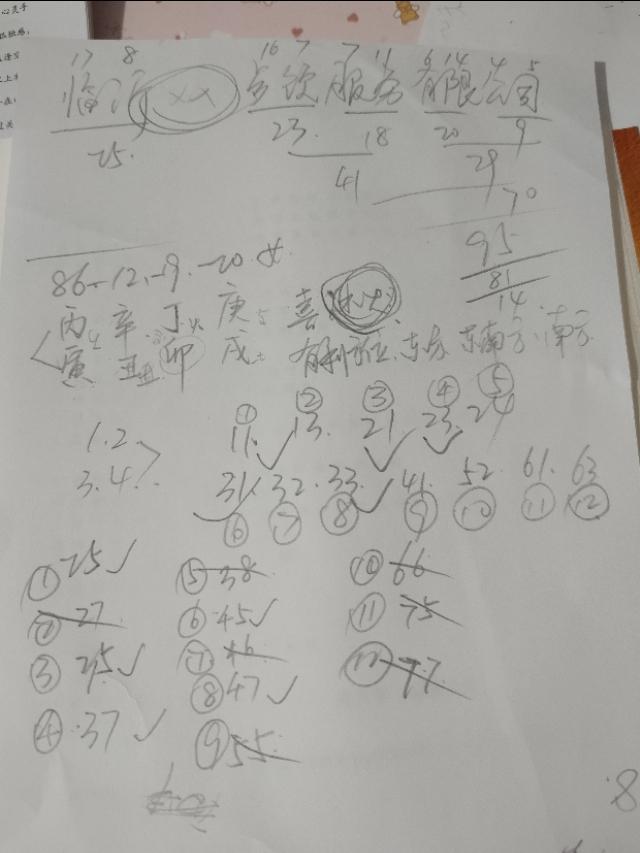 17 8 16 7 7 11 6 14 4 5
临沂 XX 餐饮服务有限公司
25. 23. 18 20 9
41 29
70
95
81
14
86.-12.-9.-20.女
丙 辛 丁火 庚 喜 木火
寅 丑土 卯 戌土 有利方位:东方.东南方.南方
① ② ③ ④ ⑤
1.2 11. 13. 21 23. 24
3.4 31. 32. 33. 41. 52. 61. 63
⑥ ⑦ ⑧ ⑨ ⑩ ⑪ ⑫
①25✓ ⑤38 ⑩66
②27 ⑥45✓ ⑪75
③35✓ ⑦46 ⑫77
④37✓ ⑧47✓
⑨55
8